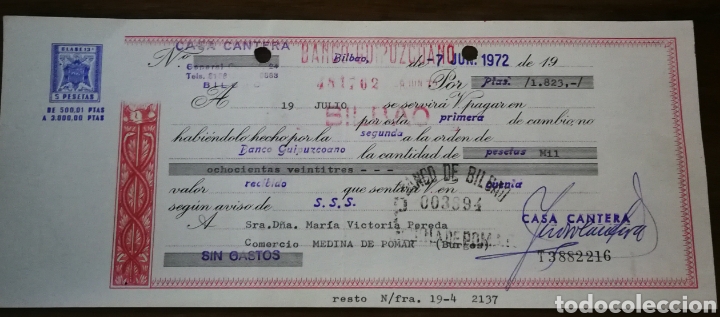 CLASE 13ª
5 PESETAS
DE 500,01 PTAS
A 3.000,00 PTAS
CASA CANTERA
General
Tels.
BILBAO
BANCO GUIPUZCOANO
481702
BILBAO
Nº Bilbao, de -7 JUN. 1972 de 19
Por Ptas. /1.823,-/
A 19 JULIO se servirá V. pagar en
por esta primera de cambio, no
habiéndolo hecho por la segunda a la orden de
Banco Guipuzcoano la cantidad de pesetas Mil
ochocientas veintitres - - -
valor recibido que sentará V. en cuenta
según aviso de S.S.S.
BANCO DE BILBAO
003394
CASA CANTERA
A Sra.Dña. María Victoria Pereda
Comercio MEDINA DE POMAR (Burgos)
SIN GASTOS
T3882216
resto N/fra. 19-4 2137
todocoleccion